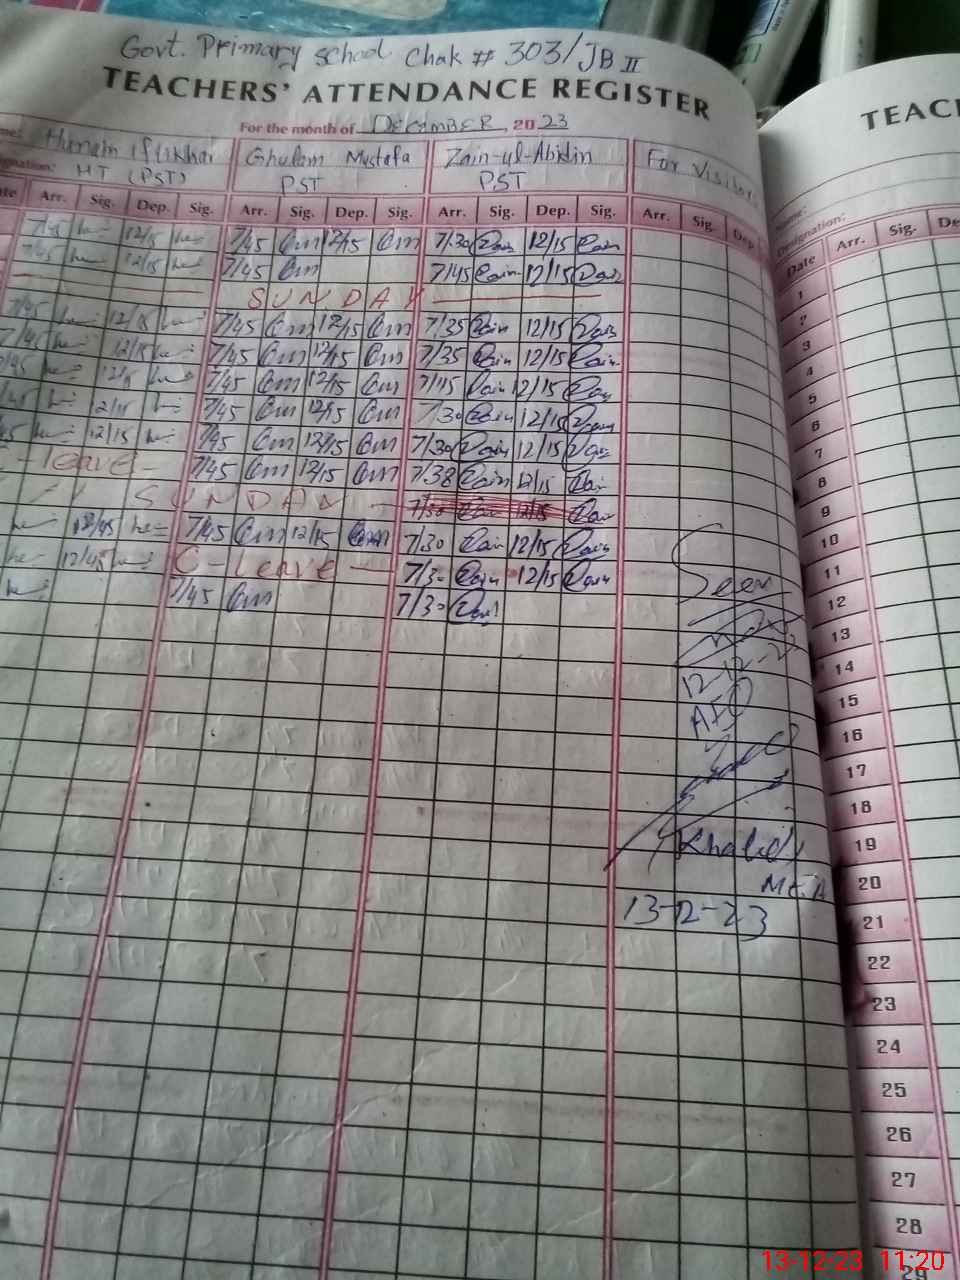 Govt. Primary school Chak # 303/JB II
TEACHERS' ATTENDANCE REGISTER
For the month of DECEMBER, 2023
Iftikhar Ghulam Mustafa Zain-ul-Abidin For Visitor
HT (PST) PST PST
Arr. Sig. Dep. Sig. Arr. Sig. Dep. Sig. Arr. Sig. Dep. Sig. Arr. Sig. Dep
7/45 12/15 7/45 Gm 12/15 Gm 7/30 Zain 12/15 Zain
7/45 12/15 7/45 Gm 7/45 Zain 12/15 Zain
SUNDAY
7/45 12/15 7/45 Gm 12/15 Gm 7/35 Zain 12/15 Zain
7/45 12/15 7/45 Gm 12/15 Gm 7/35 Zain 12/15 Zain
12/15 7/45 Gm 12/15 Gm Zain 12/15 Zain
12/15 7/45 Gm 12/15 Gm 7/30 Zain 12/15 Zain
12/15 7/45 Gm 12/15 Gm 7/30 Zain 12/15 Zain
- leave - 7/45 Gm 12/15 Gm 7/38 Zain 12/15 Zain
SUNDAY 7/30 Zain 12/15 Zain
12/45 7/45 Gm 12/15 Gm 7/30 Zain 12/15 Zain
12/45 C-Leave 7/30 Zain 12/15 Zain
7/45 Gm 7/30 Zain
Seen
12-12-23
AEO
Khalid
MEA
13-12-23
TEAC
Name:
Designation:
Date Arr. Sig. De
1
2
3
4
5
6
7
8
9
10
11
12
13
14
15
16
17
18
19
20
21
22
23
24
25
26
27
28
29
13-12-23 11:20